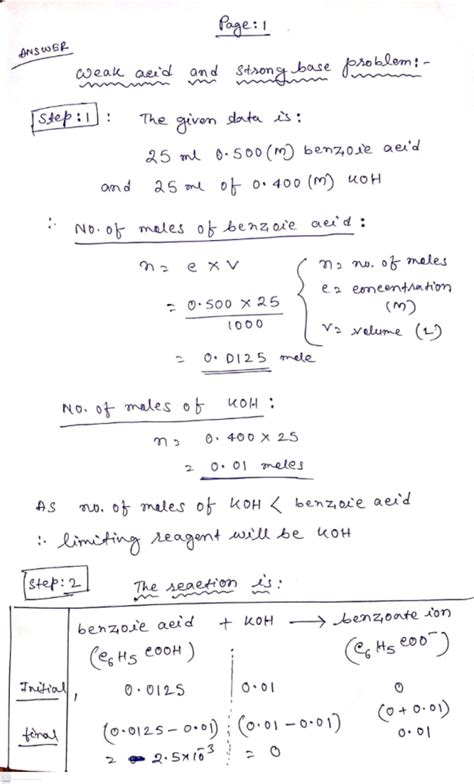 Page: 1
ANSWER
Weak acid and strong base problem:-
Step:1 : The given data is:
25 ml 0.500 (M) benzoic acid
and 25 ml of 0.400 (M) KOH
∴ No. of moles of benzoic acid:
n = c × V
= 0.500 × 25
1000
= 0.0125 mole
n = no. of moles
c = concentration
(M)
V = volume (L)
No. of moles of KOH:
n = 0.400 × 25
= 0.01 moles
As no. of moles of KOH < benzoic acid
∴ limiting reagent will be KOH
Step:2 The reaction is:
benzoic acid + KOH → benzoate ion
(C6H5COOH) (C6H5COO⁻)
Initial, 0.0125 0.01 0
final (0.0125-0.01) (0.01-0.01) (0+0.01)
= 2.5×10⁻³ = 0 0.01